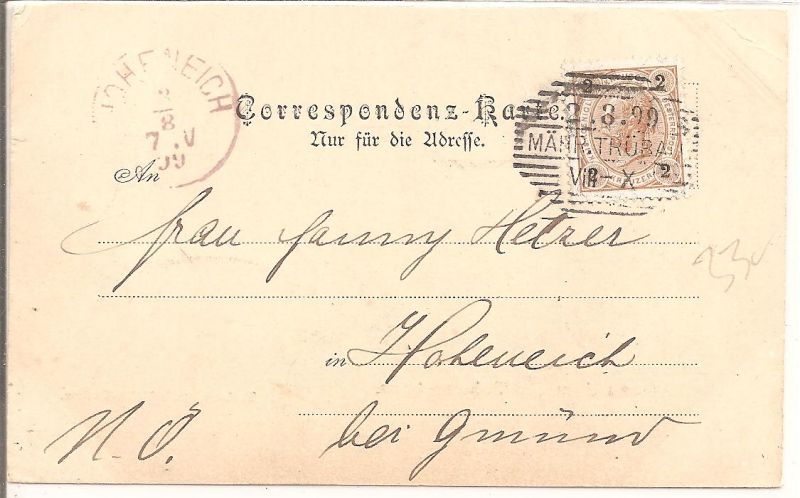 HOHENEICH
3
8
7 . V
99
Correspondenz-Karte.
Nur für die Adresse.
2 2
2.8.99
TRÜBAU
VIII-X
2 2
KREUZER
An
Frau Fanny Hetzer
in Hoheneich
N. Ö. bei Gmünd